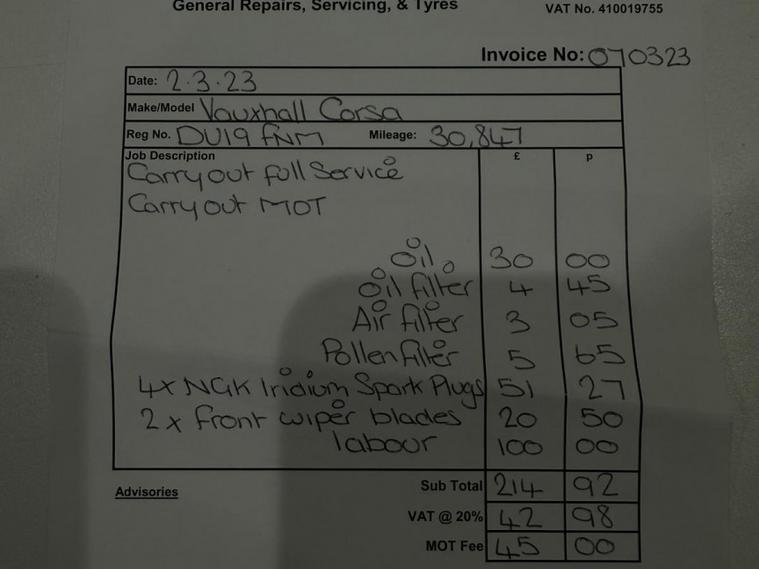 General Repairs, Servicing, & Tyres
VAT No. 410019755
Invoice No: 070323
Date: 2.3.23
Make/Model Vauxhall Corsa
Reg No. DU19 FNM Mileage: 30,847
Job Description £ p
Carry out full Service
Carry out MOT
Oil 30 00
Oil filter 4 45
Air filter 3 05
Pollen filter 5 65
4x NGK Iridium Spark Plugs 51 27
2 x front wiper blades 20 50
labour 100 00
Sub Total 214 92
Advisories
VAT @ 20% 42 98
MOT Fee 45 00